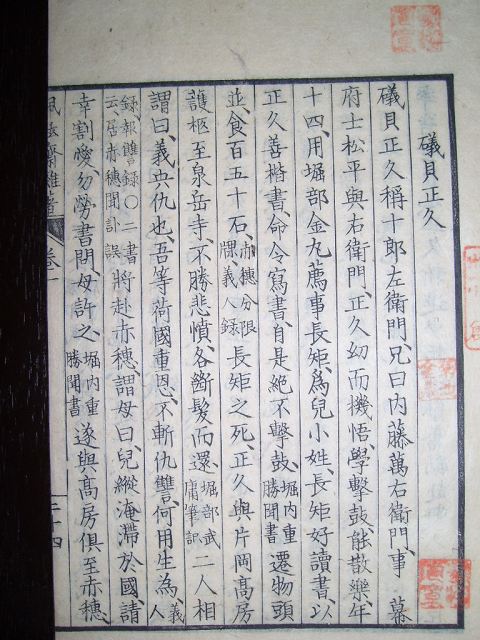 礒貝正久
礒貝正久稱十郎左衛門、兄曰内藤萬右衛門、事 幕
府士松平與右衛門、正久幼而機悟學擊鼓、能散樂、年
十四、用堀部金丸薦事長矩、爲兒小姓、長矩好讀書、以
正久善楷書、命令寫書、自是絶不擊鼓、堀内重勝聞書 遷物頭
並、食百五十石、赤穗分限牒、義人錄 長矩之死、正久與片岡髙房
護柩至泉岳寺、不勝悲憤、各斷髪而還、堀部武庸筆記 二人相
謂曰、義央仇也、吾等荷國重恩、不斬仇讐、何用生為、義人
錄、報讐録〇二書云、居赤穗聞訃誤 將赴赤穗謂母曰、兒縱淹滯於國、請
幸割愛、勿勞書問、母許之、堀内重勝聞書 遂與髙房倶至赤穗、
齋雜著 卷一 二十四